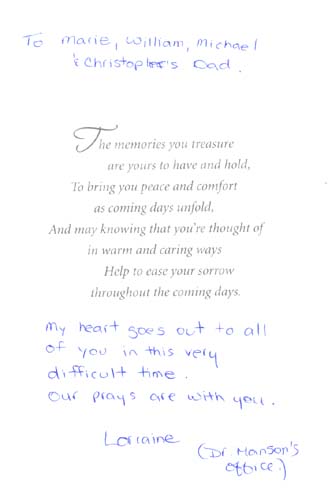 To Marie, William, Michael
& Christopher's Dad.
The memories you treasure
are yours to have and hold,
To bring you peace and comfort
as coming days unfold,
And may knowing that you're thought of
in warm and caring ways
Help to ease your sorrow
throughout the coming days.
My heart goes out to all
of you in this very
difficult time.
Our prays are with you.
Lorraine
(Dr. Manson's
office.)